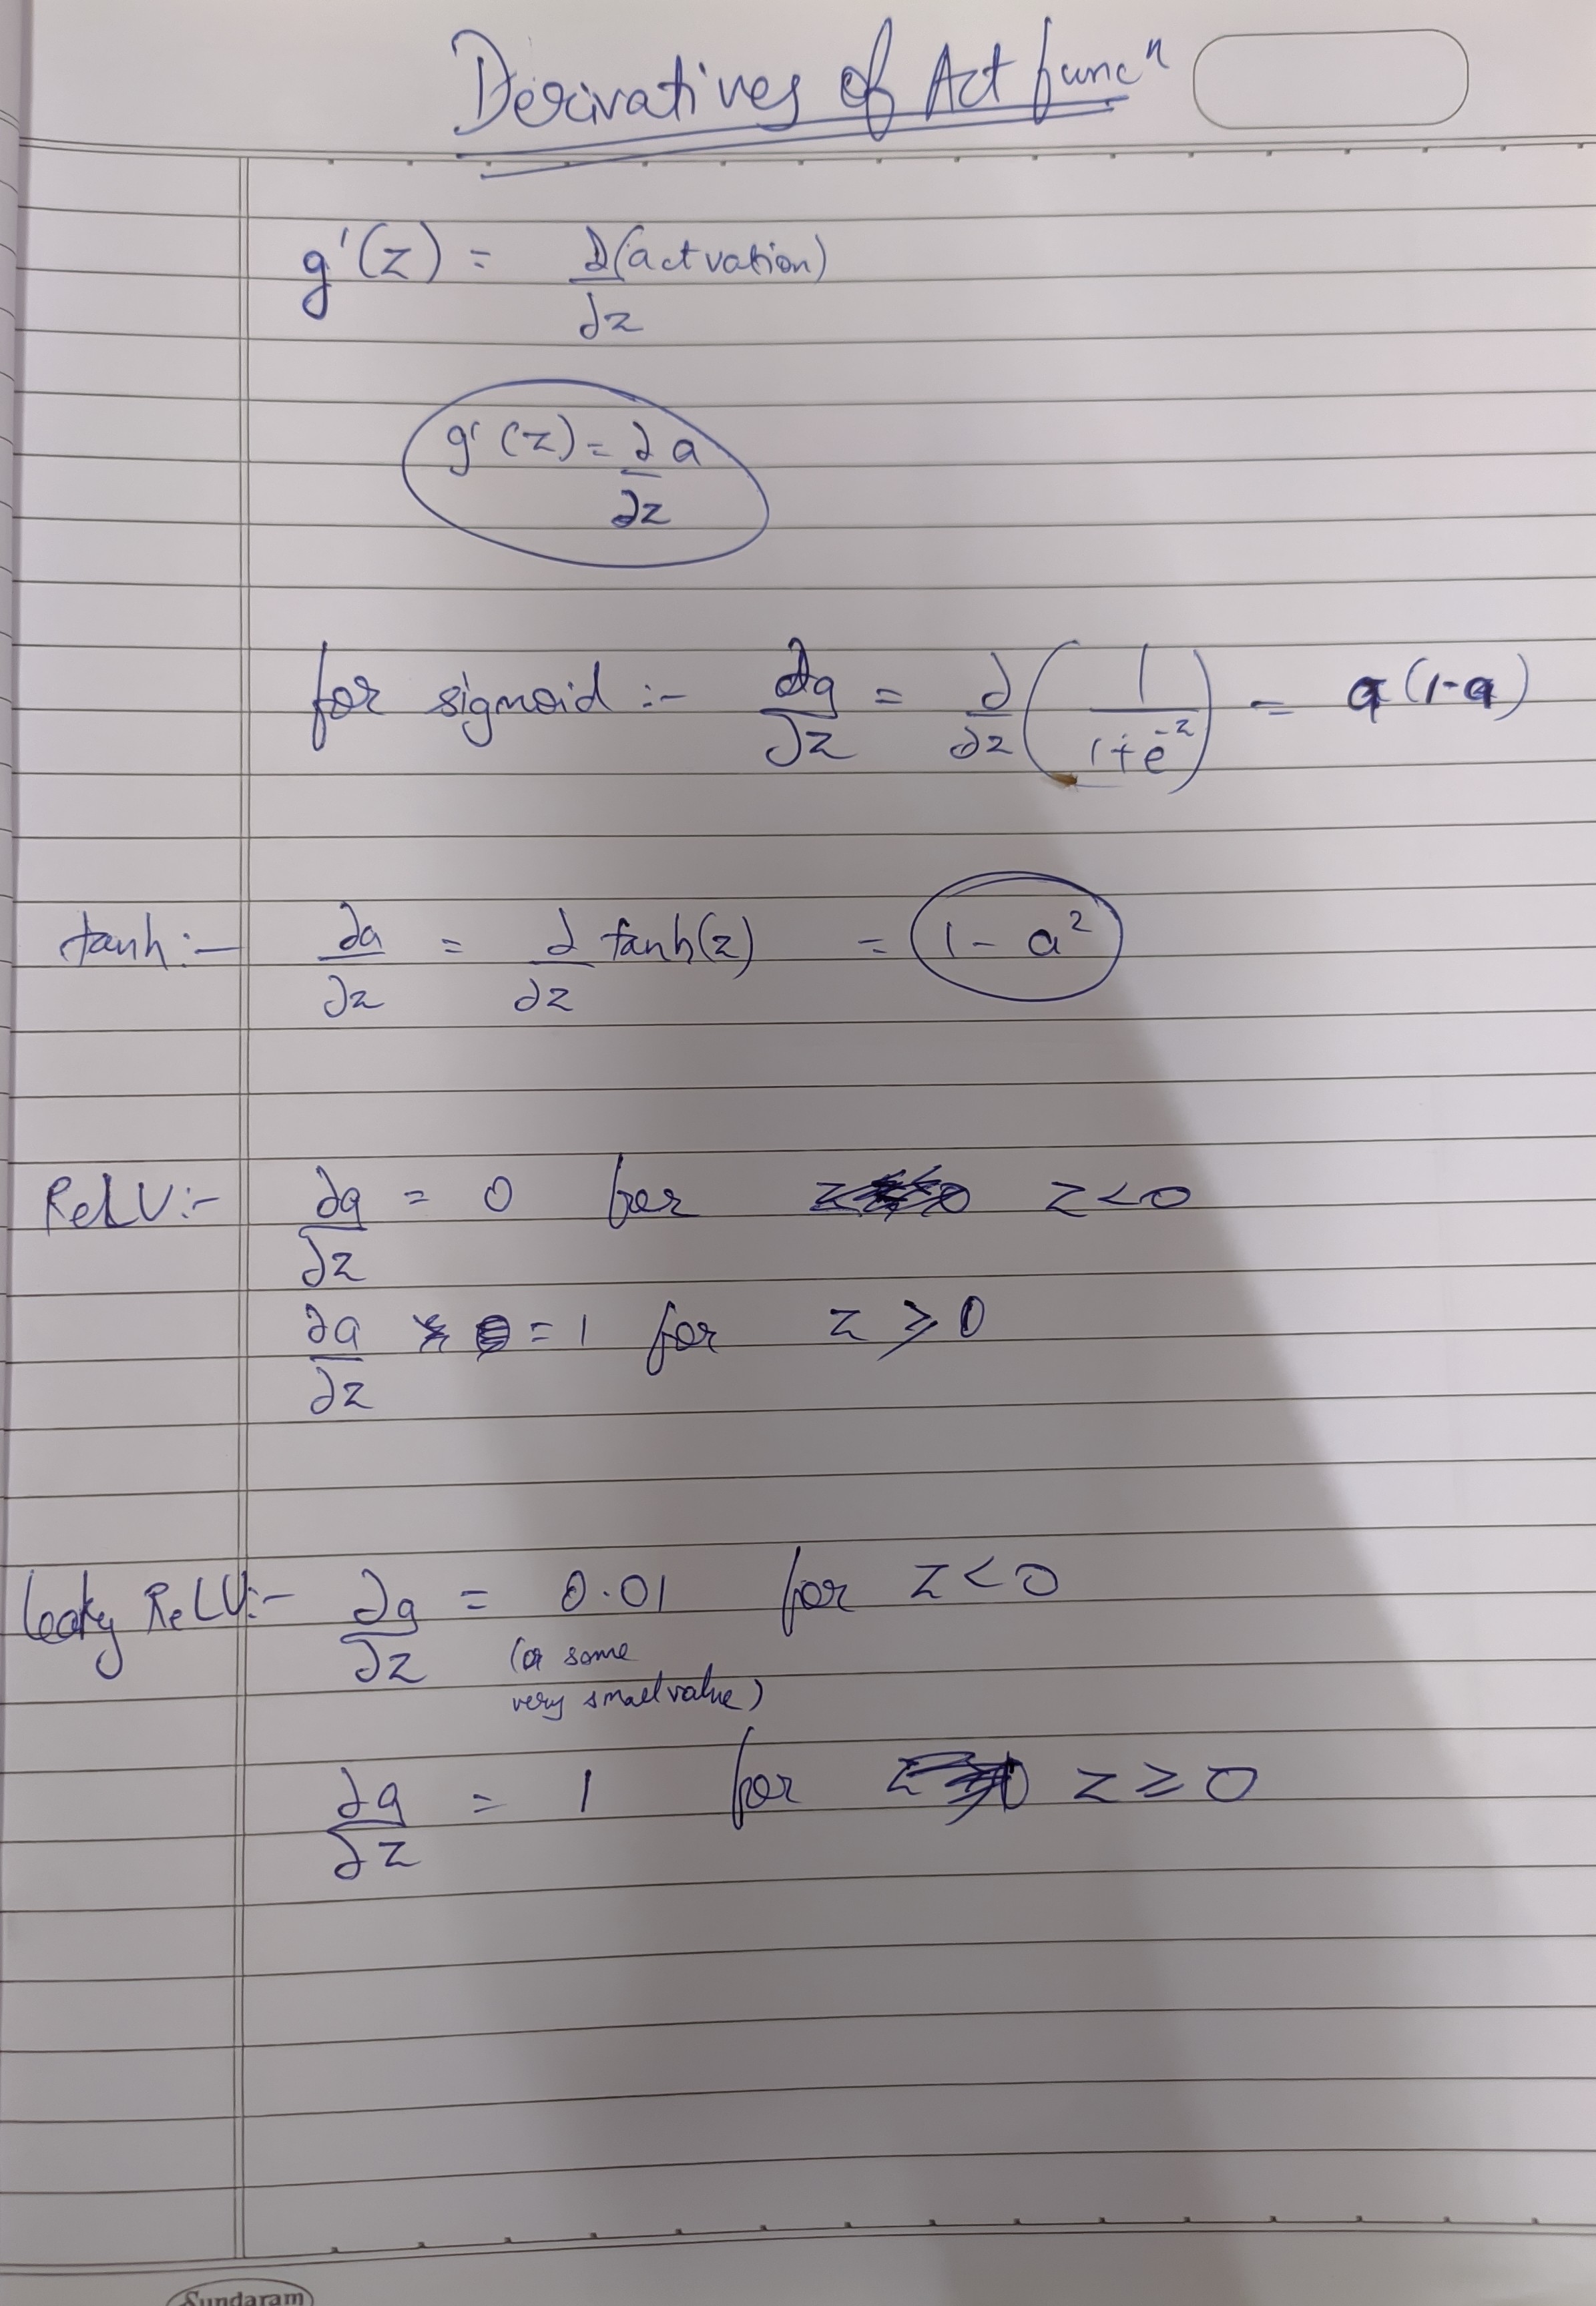 Derivatives of Act funcⁿ
g'(z) = ∂(actvation)
∂z
g'(z) = ∂ a
∂z
for sigmoid :- ∂a/∂z = ∂/∂z (1/(1+e^-z)) = a(1-a)
tanh :- ∂a/∂z = ∂/∂z tanh(z) = 1 - a²
ReLU :- ∂a/∂z = 0 for z<0
∂a/∂z = 1 for z ⩾ 0
leaky ReLU :- ∂a/∂z = 0.01 for z<0
(or some
very small value)
∂a/∂z = 1 for z ≥ 0
Sundaram